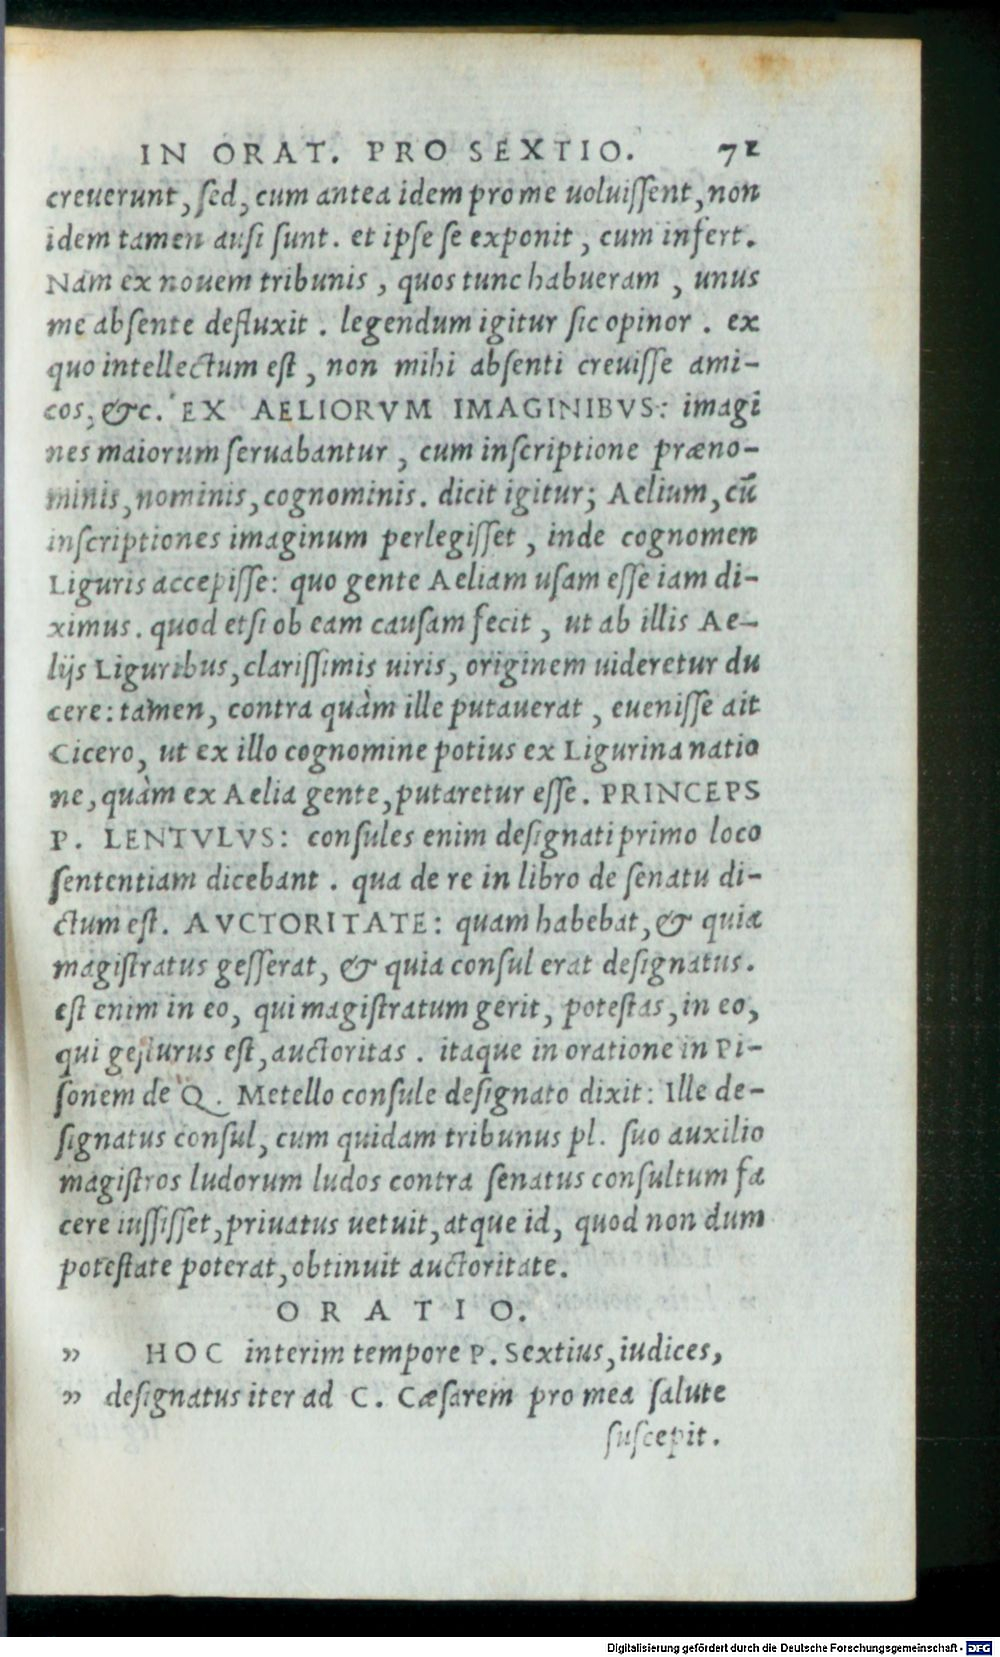 IN ORAT. PRO SEXTIO. 71
creuerunt, sed, cum antea idem pro me uoluissent, non
idem tamen ausi sunt. et ipse se exponit, cum infert.
Nam ex nouem tribunis, quos tunc habueram, unus
me absente defluxit. legendum igitur sic opinor. ex
quo intellectum est, non mihi absenti creuisse ami-
cos, &c. EX AELIORVM IMAGINIBVS: imagi
nes maiorum seruabantur, cum inscriptione præno-
minis, nominis, cognominis. dicit igitur; Aelium, cũ
inscriptiones imaginum perlegisset, inde cognomen
Liguris accepisse: quo gente Aeliam usam esse iam di-
ximus. quod etsi ob eam causam fecit, ut ab illis Ae-
lijs Liguribus, clarissimis uiris, originem uideretur du
cere: tamen, contra quàm ille putauerat, euenisse ait
Cicero, ut ex illo cognomine potius ex Ligurina natio
ne, quàm ex Aelia gente, putaretur esse. PRINCEPS
P. LENTVLVS: consules enim designati primo loco
sententiam dicebant. qua de re in libro de senatu di-
ctum est. AVCTORITATE: quam habebat, & quia
magistratus gesserat, & quia consul erat designatus.
est enim in eo, qui magistratum gerit, potestas, in eo,
qui gesturus est, auctoritas. itaque in oratione in Pi-
sonem de Q. Metello consule designato dixit: Ille de-
signatus consul, cum quidam tribunus pl. suo auxilio
magistros ludorum ludos contra senatus consultum fa
cere iussisset, priuatus uetuit, atque id, quod non dum
potestate poterat, obtinuit auctoritate.
ORATIO.
" HOC interim tempore P. Sextius, iudices,
" designatus iter ad C. Cæsarem pro mea salute
suscepit.
Digitalisierung gefördert durch die Deutsche Forschungsgemeinschaft - DFG